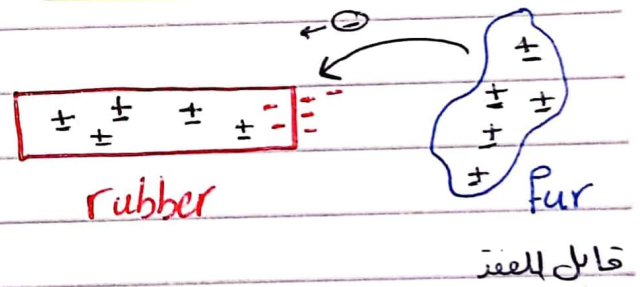 ⊖
± ± ± ± ± - - - - - -
± ± ± ± ±
rubber
fur
قابل للفقد